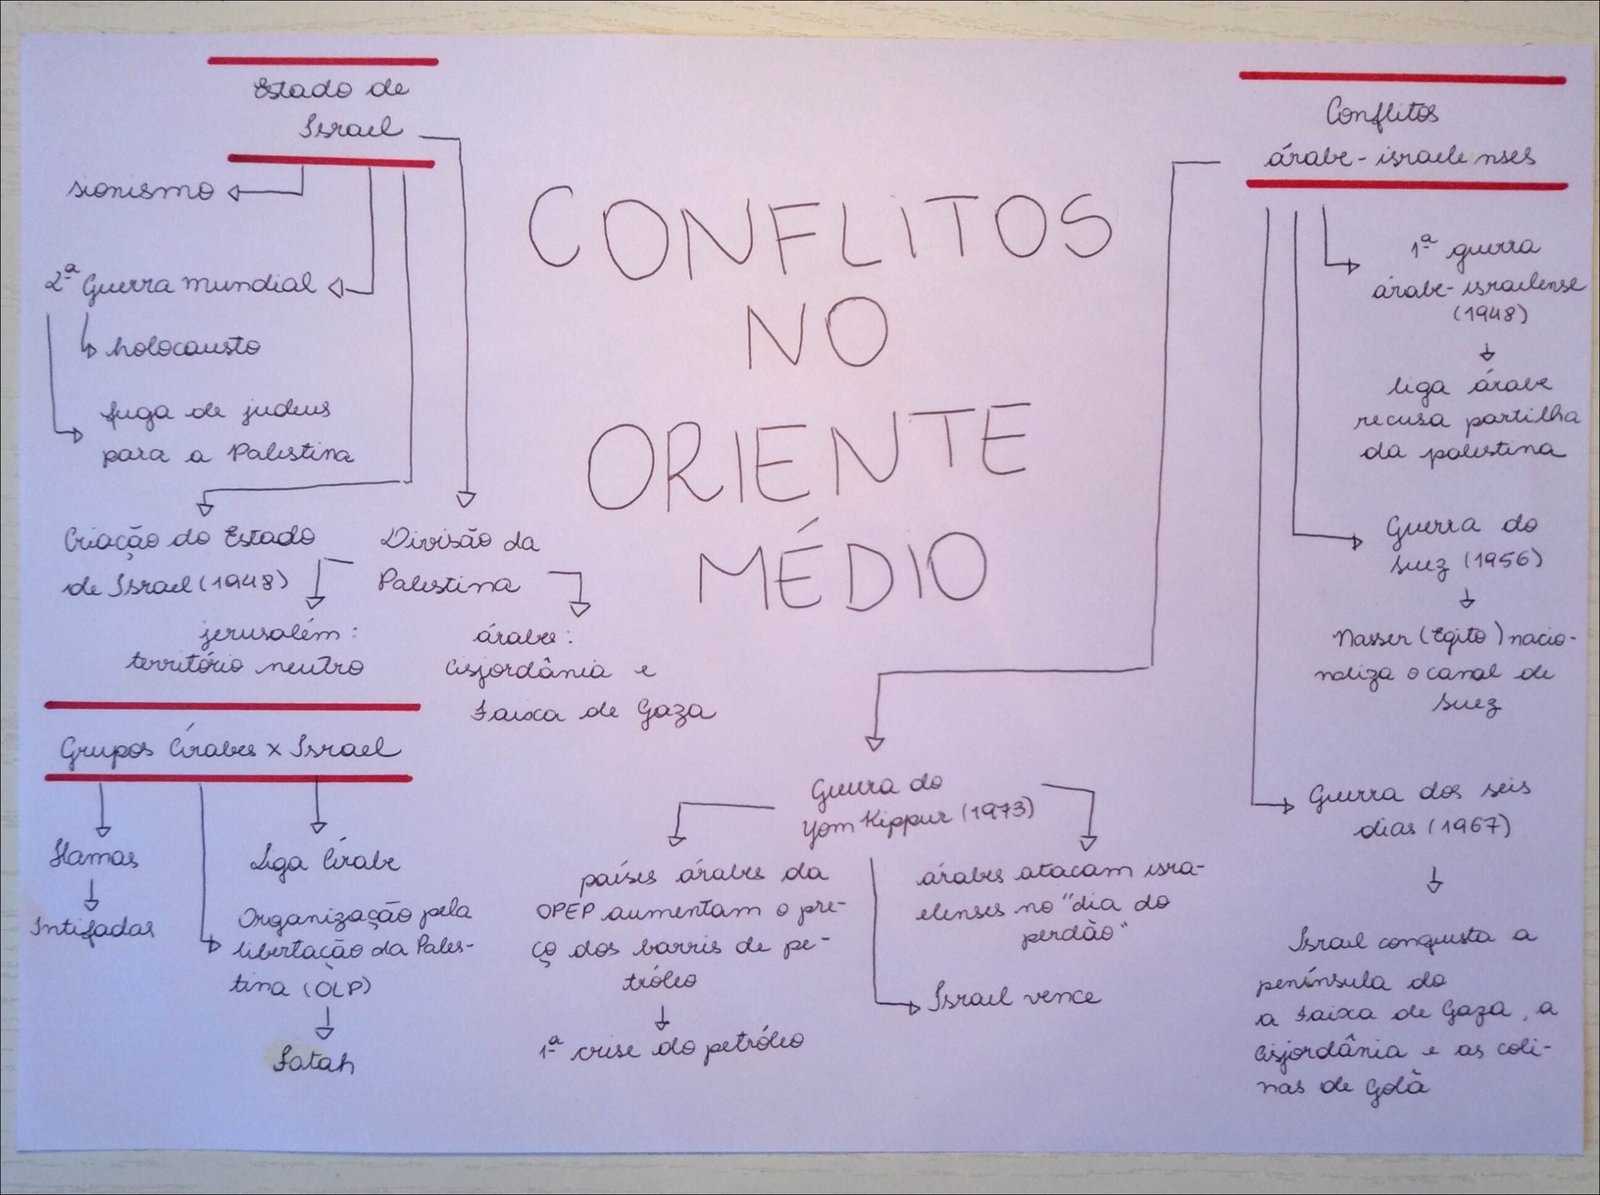 Estado de
Israel
sionismo
2ª Guerra mundial
holocausto
fuga de judeus
para a Palestina
Criação do Estado
de Israel (1948)
Divisão da
Palestina
jerusalém:
território neutro
árabe:
Cisjordânia e
Faixa de Gaza
Grupos Árabes x Israel
Hamas
Intifadas
Liga Árabe
Organização pela
libertação da Pales-
tina (OLP)
Fatah
CONFLITOS
NO
ORIENTE
MÉDIO
Conflitos
árabe-israelenses
1ª guerra
árabe-israelense
(1948)
liga árabe
recusa partilha
da palestina
Guerra do
Suez (1956)
Nasser (Egito) nacio-
naliza o canal de
Suez
Guerra dos seis
dias (1967)
Israel conquista a
península do
a Faixa de Gaza, a
Cisjordânia e as coli-
nas de Golã
Guerra do
Yom Kippur (1973)
países árabes da
OPEP aumentam o pre-
ço dos barris de pe-
tróleo
1ª crise do petróleo
árabes atacam isra-
elenses no "dia do
perdão"
Israel vence